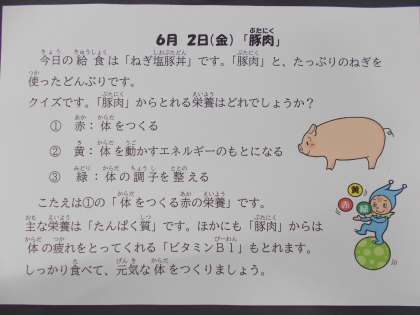 6月 2日(金)「豚肉」
今日の給食は「ねぎ塩豚丼」です。「豚肉」と、たっぷりのねぎを
使ったどんぶりです。
クイズです。「豚肉」からとれる栄養はどれでしょうか?
① 赤:体をつくる
② 黄:体を動かすエネルギーのもとになる
③ 緑:体の調子を整える
こたえは①の「体をつくる赤の栄養」です。
主な栄養は「たんぱく質」です。ほかにも「豚肉」からは
体の疲れをとってくれる「ビタミンB1」もとれます。
しっかり食べて、元気な体をつくりましょう。
黄
赤
緑